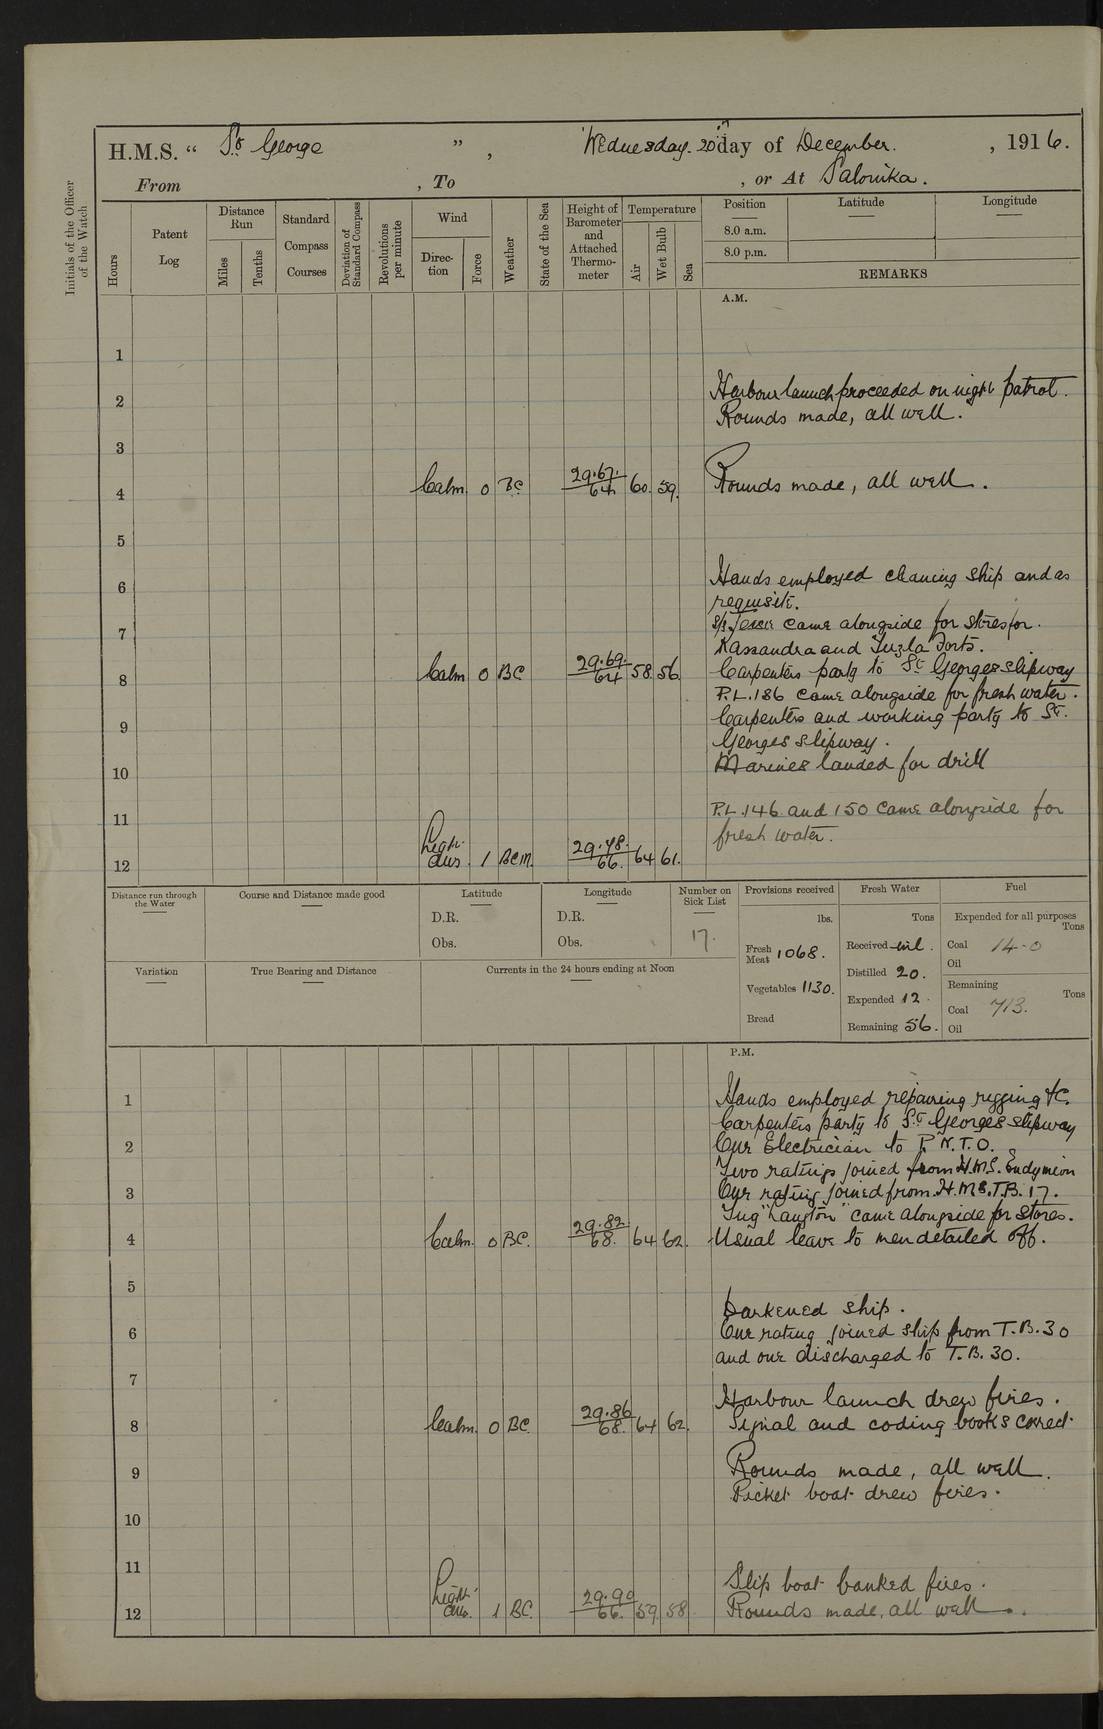 H.M.S. “ St George ”, Wednesday. 20th day of December. , 1916.
From , To , or At Salonika.
Initials of the Officer of the Watch
Hours
Patent Log
Distance Run
Miles
Tenths
Standard Compass Courses
Deviation of Standard Compass
Revolutions per minute
Wind
Direction
Force
Weather
State of the Sea
Height of Barometer and Attached Thermometer
Temperature
Air
Wet Bulb
Sea
Position
Latitude
Longitude
8.0 a.m.
8.0 p.m.
REMARKS
A.M.
1
2 Harbour launch proceeded on night patrol.
Rounds made, all well.
3
4 Calm. 0 BC 29.67. 64 60. 59. Rounds made, all well.
5
Hands employed cleaning ship and as
6 requisite.
S/S Jessie came alongside for stores for.
7 Kassandra and Tuzla Forts.
8 Calm 0 BC 29.69. 64 58 56. Carpenters party to St Georges slipway
P.L.186 came alongside for fresh water.
9 Carpenters and working party to St.
Georges slipway.
10 Marines landed for drill
11 P.L.146 and 150 came alongside for
fresh water.
12 Light airs 1 BCM. 29.78. 66. 64 61.
Distance run through the Water
Course and Distance made good
Latitude
D.R.
Obs.
Longitude
D.R.
Obs.
Number on Sick List
17.
Provisions received
lbs.
Fresh Meat 1068.
Vegetables 1130.
Bread
Fresh Water
Tons
Received nil.
Distilled 20.
Expended 12.
Remaining 56.
Fuel
Expended for all purposes
Tons
Coal 14-0
Oil
Remaining
Tons
Coal 713.
Oil
Variation
True Bearing and Distance
Currents in the 24 hours ending at Noon
P.M.
1 Hands employed repairing rigging &c.
Carpenters party to St Georges slipway
2 One Electrician to P.N.T.O.
Two ratings joined from H.M.S. Endymion
3 One rating joined from H.M.S.T.B. 17.
Tug "Langton" came alongside for stores.
4 Calm. 0 BC. 29.82. 68. 64 62. Usual leave to men detailed off.
5
Darkened ship.
6 One rating joined ship from T.B.30
and one discharged to T.B. 30.
7
Harbour launch drew fires.
8 Calm. 0 BC. 29.86 68. 64 62. Signal and coding books correct.
9 Rounds made, all well.
Picket boat drew fires.
10
11
Slip boat banked fires.
12 Light airs. 1 BC. 29.90 66. 59. 58. Rounds made, all well.